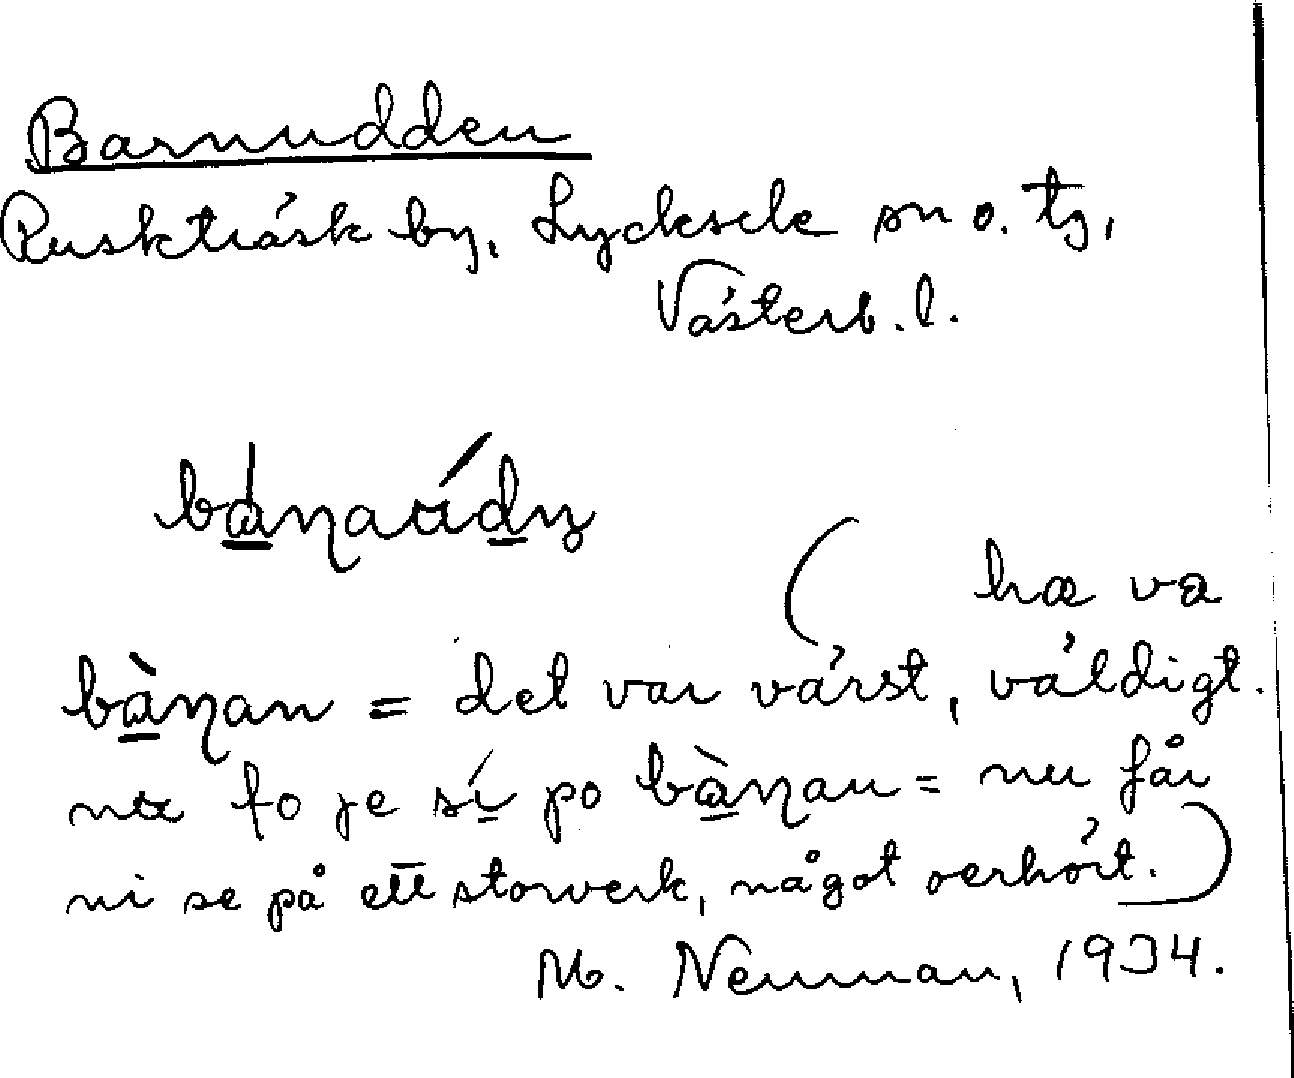 Barnudden
Ruskträsk by, Lycksele sn o. tg,
Västerb. l.
báṇaúdṇ
(hæ va
bàṇan = det var värst, väldigt.
nu fo je sí po bàṇan = nu får
ni se på ett storverk, något oerhört.)
M. Neuman, 1934.